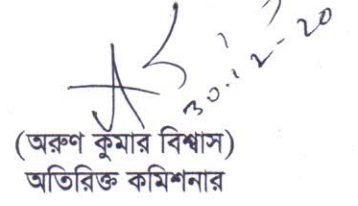 30.12-20
(অরুণ কুমার বিশ্বাস)
অতিরিক্ত কমিশনার